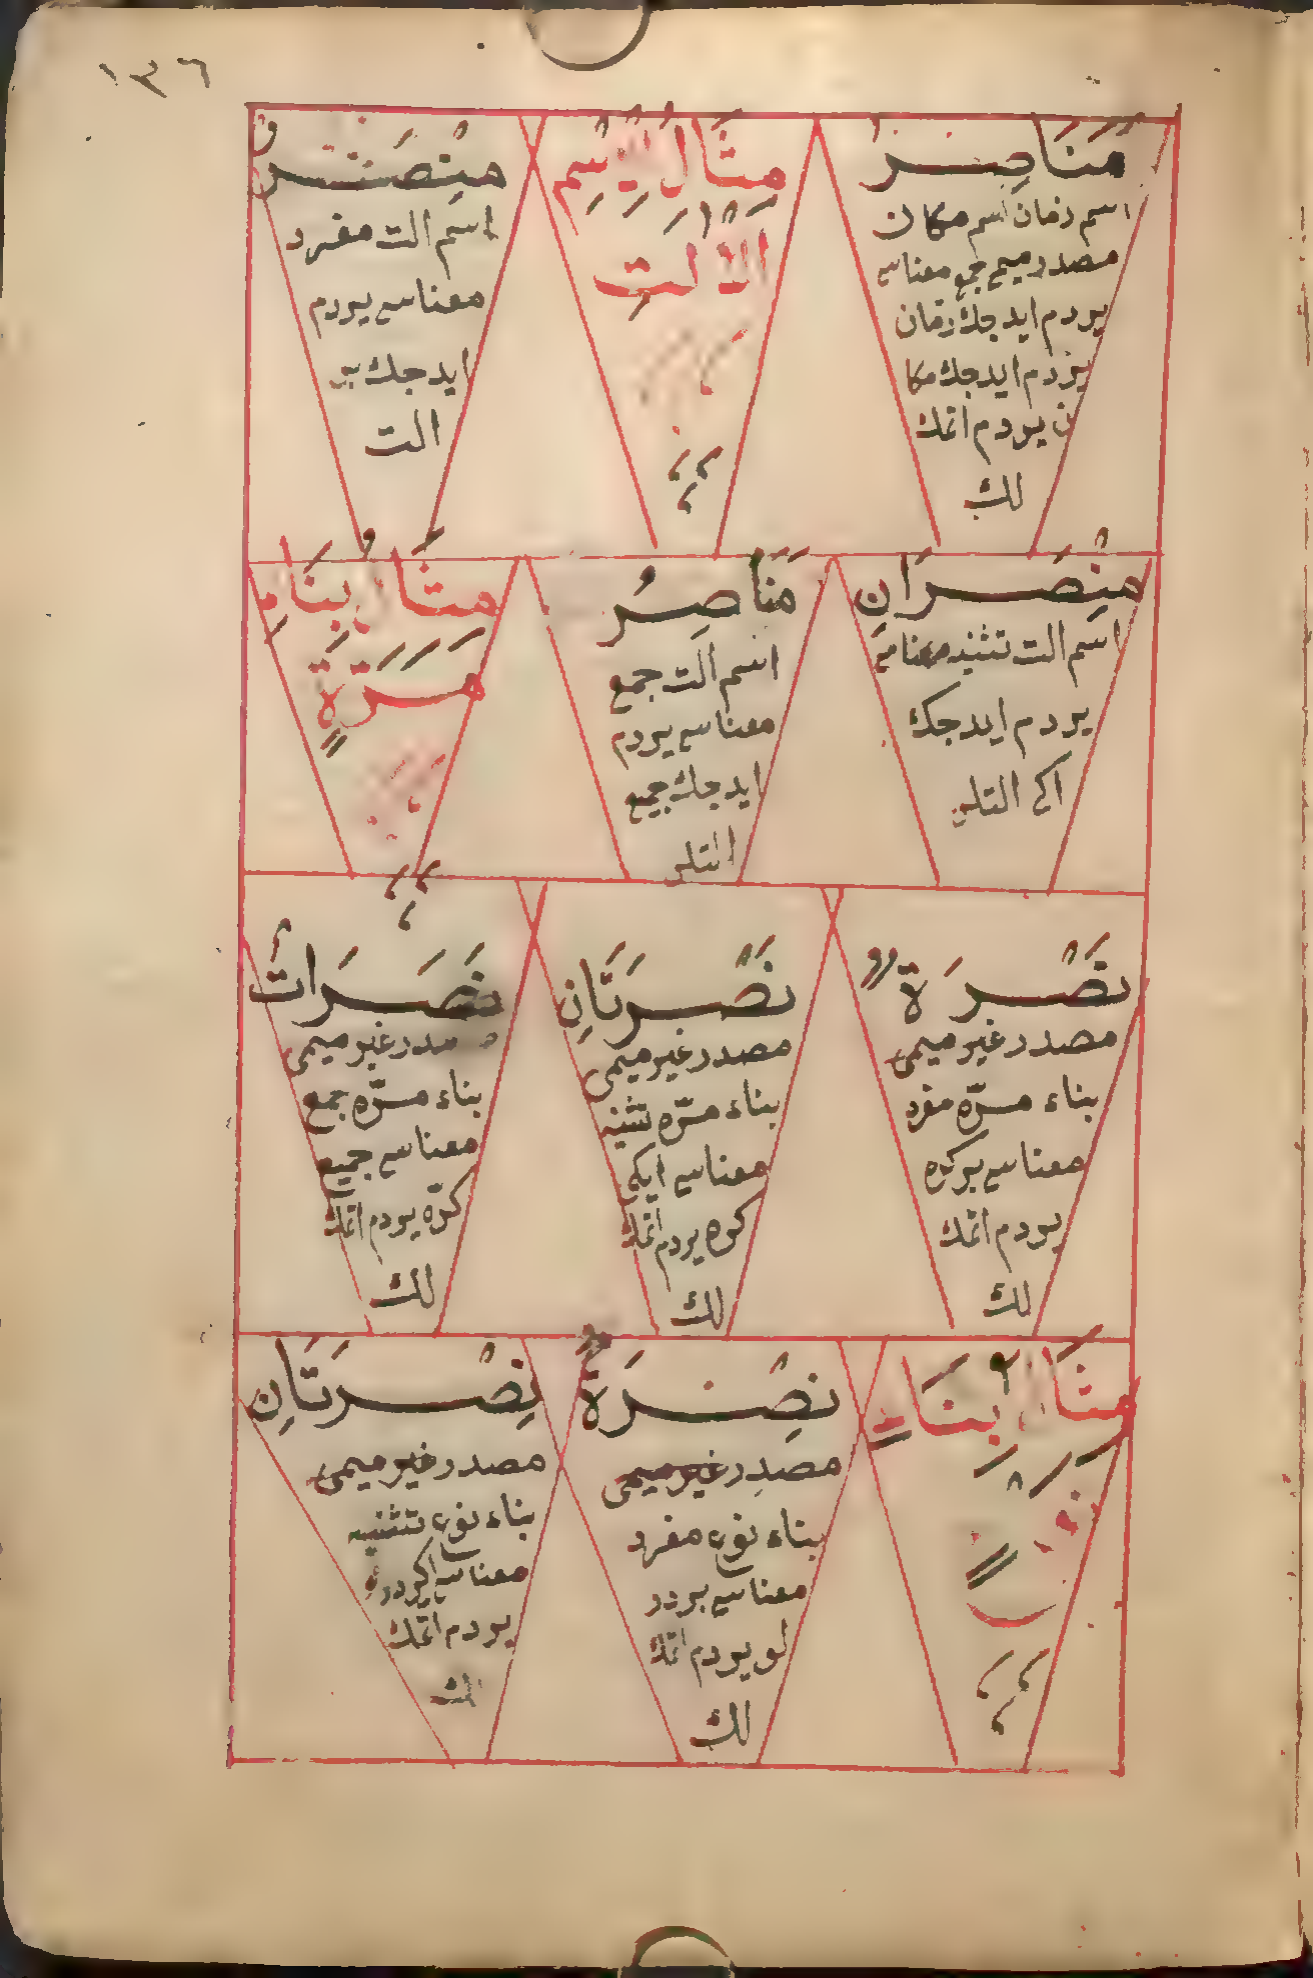 ١٣٦
مَنَاصِرُ
اسم زمان اسم مكان
مصدر ميمى جمع معناسى
يردم ايدجك زمان
يردم ايدجك مكا
ن يردم اتمك
لك
مِثَالُ اِسْمِ
الآلت
مِنْصَرٌ
اسم الت مفرد
معناسى يردم
ايدجك بر
الت
مِنْصَرَانِ
اسم الت تثنيه معناسى
يردم ايدجك
اكى التلر
مَنَاصِرُ
اسم الت جمع
معناسى يردم
ايدجك جميع
التلر
مِثَالُ بِنَاءِ
مَرَّةٍ
نَصْرَةً
مصدر غير ميمى
بناء مرّه مفرد
معناسى بر كره
يردم اتمك
لك
نَصْرَتَانِ
مصدر غير ميمى
بناء مرّه تثنيه
معناسى ايكى
كره يردم اتمك
لك
نَصَرَاتٌ
مصدر غير ميمى
بناء مرّه جمع
معناسى جميع
كرّه يردم اتمك
لك
مِثَالُ بِنَاءِ
نوع
نِصْرَةٌ
مصدر غير ميمى
بناء نوع مفرد
معناسى بر در
لو يردم اتمك
لك
نِصْرَتَانِ
مصدر غير ميمى
بناء نوع تثنيه
معناسى
يردم اتمك
لك